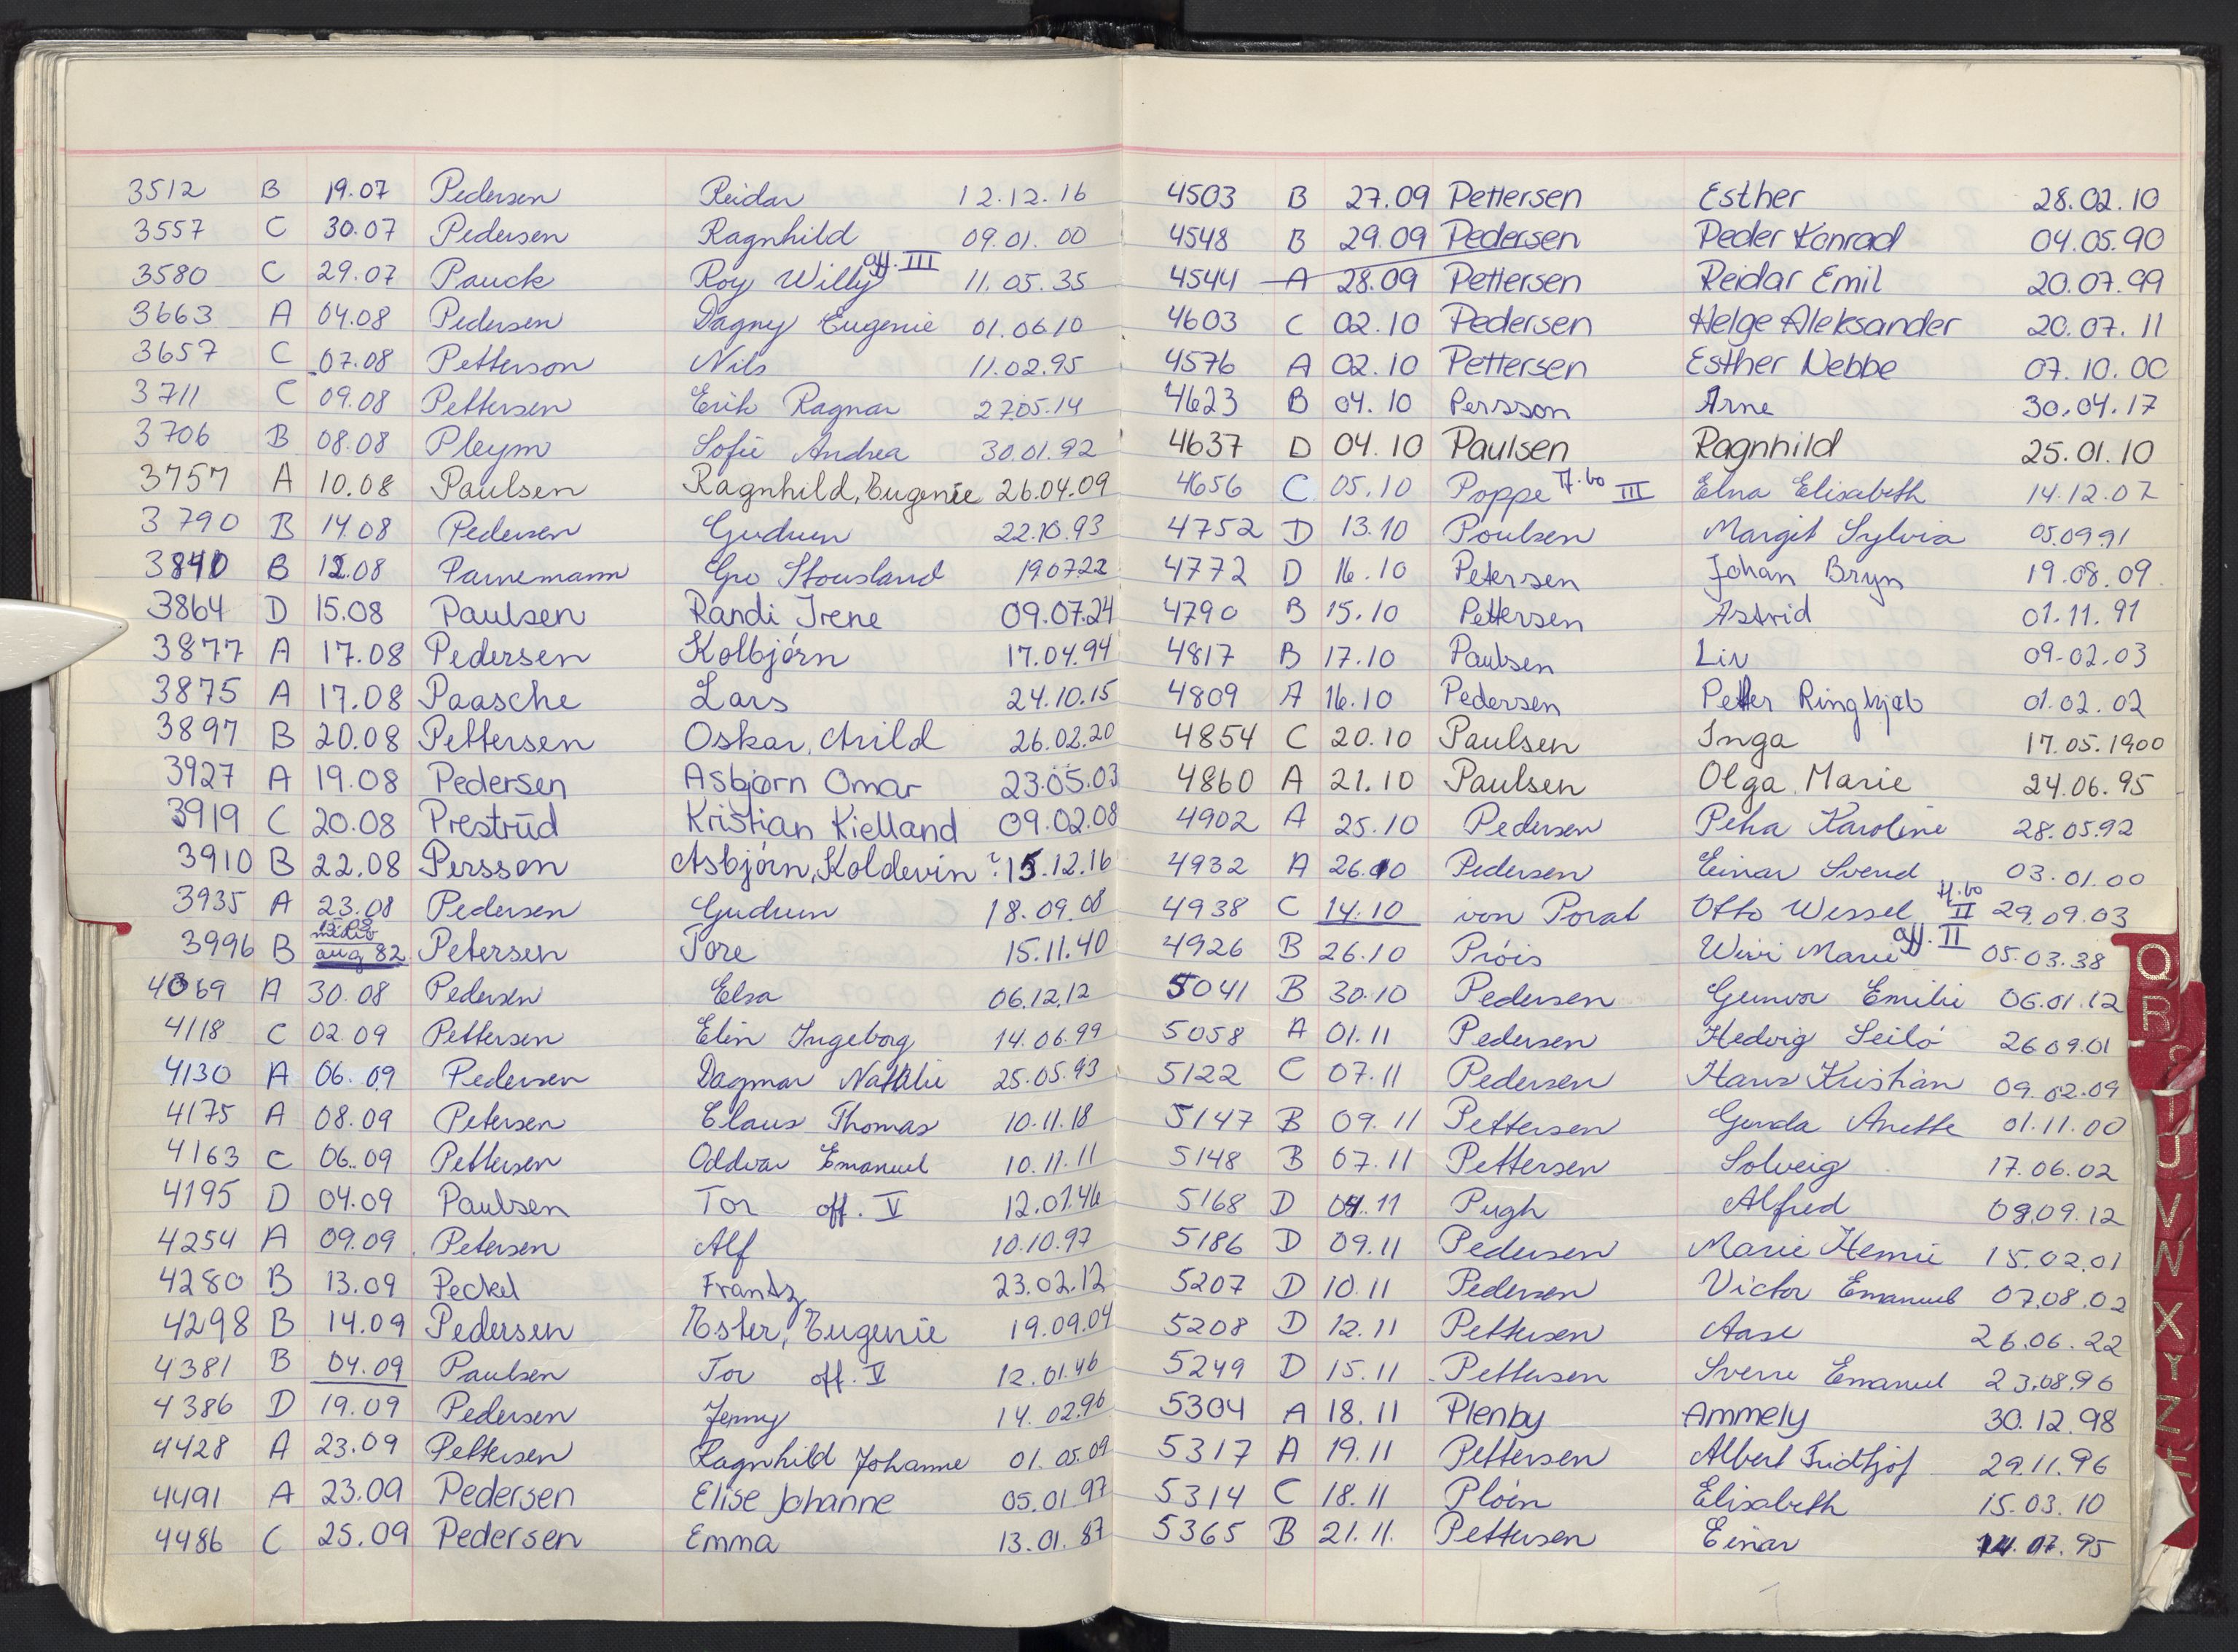 3512 B 19.07 Pedersen Reidar 12.12.16
3557 C 30.07 Pedersen Ragnhild 09.01.00
3580 C 29.07 Pauck Roy Willy off. III 11.05.35
3663 A 04.08 Pedersen Dagny Eugenie 01.06.10
3657 C 07.08 Petterson Nils 11.02.95
3711 C 09.08 Pettersen Erik Ragnar 27.05.14
3706 B 08.08 Pleym Sofie Andrea 30.01.92
3757 A 10.08 Paulsen Ragnhild, Eugenie 26.04.09
3790 B 14.08 Pedersen Gudrun 22.10.93
3840 B 12.08 Parnemann Gro Stousland 190722
3864 D 15.08 Paulsen Randi Irene 09.07.24
3877 A 17.08 Pedersen Kolbjórn 17.04.94
3875 A 17.08 Paasche Lars 24.10.15
3897 B 20.08 Pettersen Oskar, Arild 26.02.20
3927 A 19.08 Pedersen Asbjørn Omar 23.05.03
3919 C 20.08 Prestrud Kristian Kielland 09.02.08
3910 B 22.08 Persson Asbjórn, Koldevin 15.12.16
3935 A 23.08 Pedersen Gudrun 18.09.08
3996 B medio aug 82 Petersen Tore 15.11.40
4069 A 30.08 Pedersen Elsa 06.12.12
4118 C 02.09 Pettersen Elin Ingeborg 14.06.99
4130 A 06.09 Pedersen Dagmar Nathalie 25.05.93
4175 A 08.09 Petersen Claus Thomas 10.11.18
4163 C 06.09 Pettersen Oddvar Emanuel 10.11.11
4195 D 04.09 Paulsen Tor off. V 12.01.46
4254 A 09.09 Petersen Alf 10.10.97
4280 B 13.09 Peckel Frantz 23.02.12
4298 B 14.09 Pedersen Ester, Eugenie 19.09.04
4381 B 04.09 Paulsen Tor off. V 12.01.46
4386 D 19.09 Pedersen Jenny 14.02.96
4428 A 23.09 Pettersen Ragnhild Johanne 01.05.09
4491 A 23.09 Pedersen Elise Johanne 05.01.97
4486 C 25.09 Pedersen Emma 13.01.87
4503 B 27.09 Pettersen Esther 28.02.10
4548 B 29.09 Pedersen Peder Konrad 04.05.90
4544 A 28.09 Pettersen Reidar Emil 20.07.99
4603 C 02.10 Pedersen Helge Aleksander 20.07.11
4576 A 02.10 Pettersen Esther Nebbe 07.10.00
4623 B 04.10 Persson Arne 30.04.17
4637 D 04.10 Paulsen Ragnhild 25.01.10
4656 C 05.10 Poppe III Elna Elisabeth 14.12.07
4752 D 13.10 Poulsen Margit Sylvia 05.09.91
4772 D 16.10 Petersen Johan Bryn 19.08.09
4790 B 15.10 Pettersen Astrid 01.11.91
4817 B 17.10 Paulsen Liv 09.02.03
4809 A 16.10 Pedersen Petter Ringkjøb 01.02.02
4854 C 20.10 Paulsen Inga 17.05.1900
4860 A 21.10 Paulsen Olga Marie 24.06.95
4902 A 25.10 Pedersen Petra Karoline 28.05.92
4932 A 26.10 Pedersen Einar Svend 03.01.00
4938 C 14.10 von Porat Otto Wessel II 29.09.03
4926 B 26.10 Próis Wivi Marie off. II 05.03.38
5041 B 30.10 Pedersen Gunvor Emilie 06.01.12
5058 A 01.11 Pedersen Hedvig Seiló 26.09.01
5122 C 07.11 Pedersen Hans Kristian 09.02.09
5147 B 09.11 Pettersen Gunda Anette 01.11.00
5148 B 07.11 Pettersen Solveig 17.06.02
5168 D 04.11 Pugh Alfred 09.09.12
5186 D 09.11 Pedersen Marie 15.02.01
5207 D 10.11 Pedersen Victor Emanuel 07.08.02
5208 D 12.11 Pettersen Aase 26.06.22
5249 D 15.11 Pettersen Sverre Emanuel 23.08.96
5304 A 18.11 Plenby Ammely 30.12.98
5317 A 19.11 Pettersen Albert Fridtjof 29.11.96
5314 C 18.11 Plóen Elisabeth 15.03.10
5365 B 21.11. Pettersen Einar 14.07.95
Q
R
U
V
W
X
Y
Z